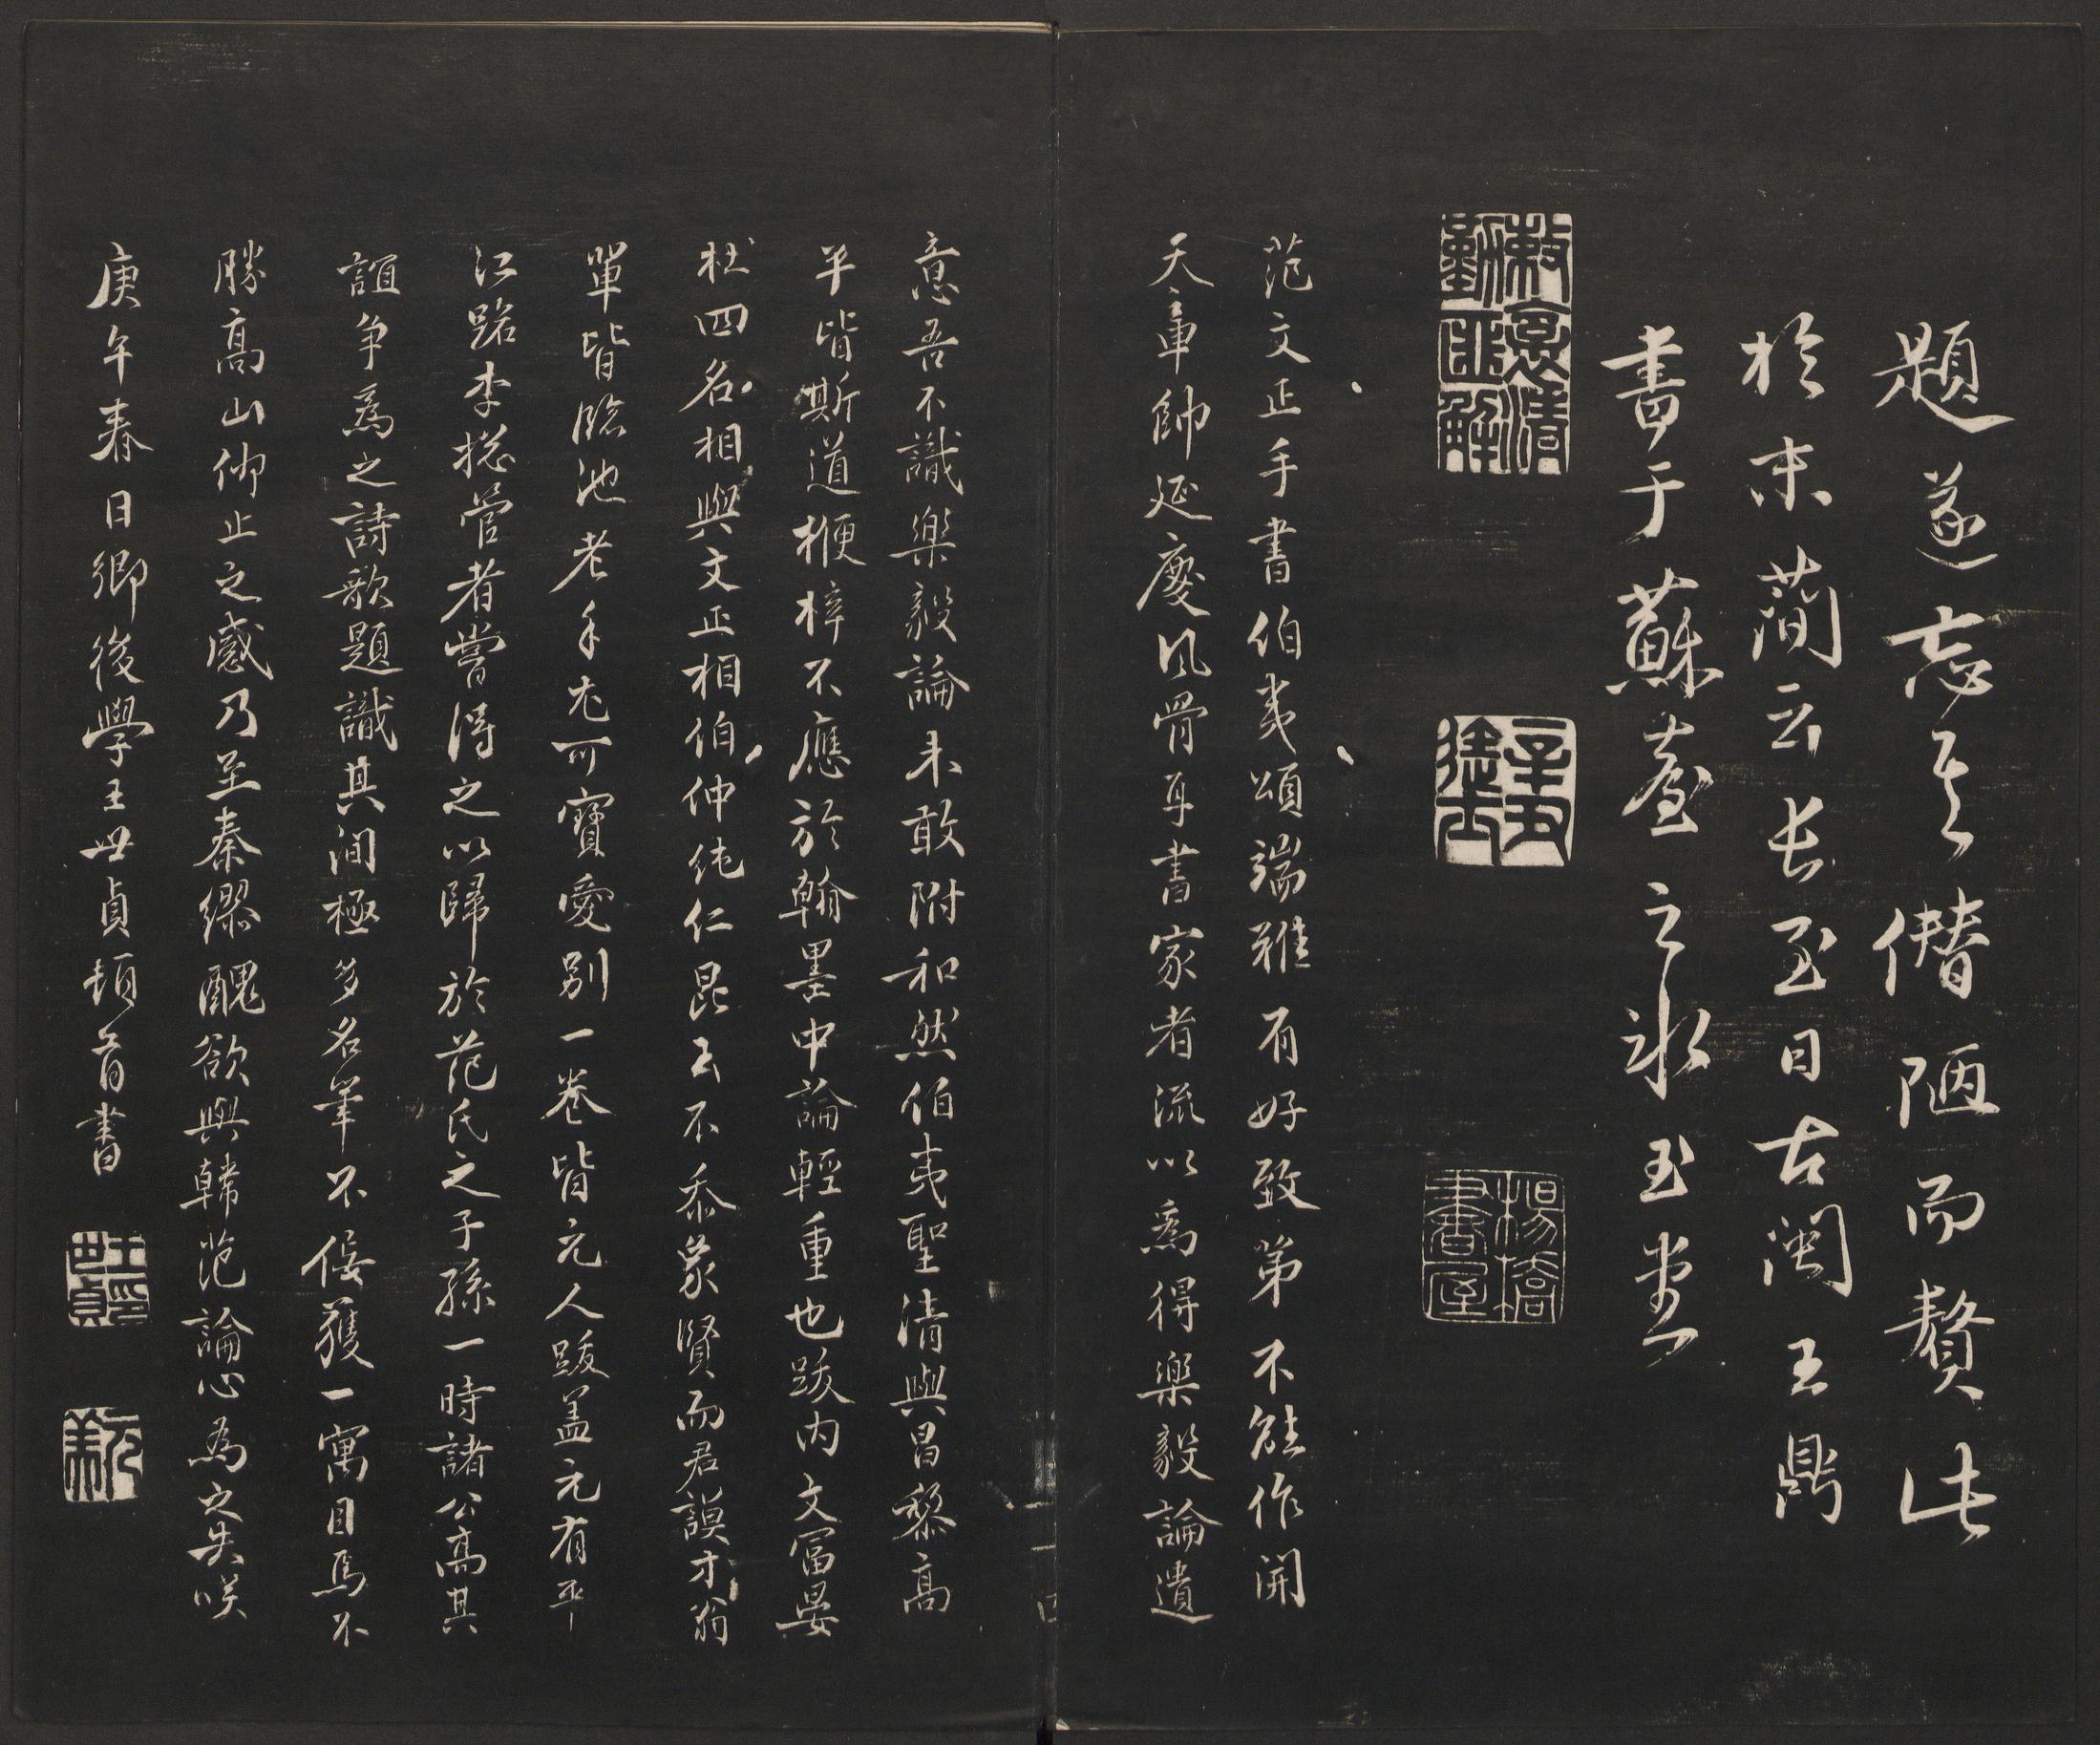 題遂忘其僭陋而贅此
於末簡云長至日古閩王鼎
書于蘇臺之氷玉堂
楊橋書屋
范文正手書伯夷頌端雅有好致第不能作開
天軍帥延慶風骨耳書家者流以爲得樂毅論遺
意吾不識樂毅論未敢附和然伯夷聖清與昌黎高
平皆斯道楩梓不應於翰墨中論輕重也跋內文富晏
杜四名相與文正相伯仲純仁昆玉不忝象賢而君謨才翁
單皆臨池老手尤可寶愛別一卷皆元人跋盖元有平
江路李捴管者嘗得之以歸於范氏之子孫一時諸公高其
誼争爲之詩歌題識其間極多名筆不佞獲一寓目焉不
勝高山仰止之感乃至秦繆醜欲與韓范論心為之失咲
庚午春日鄉後學王世貞頓首書